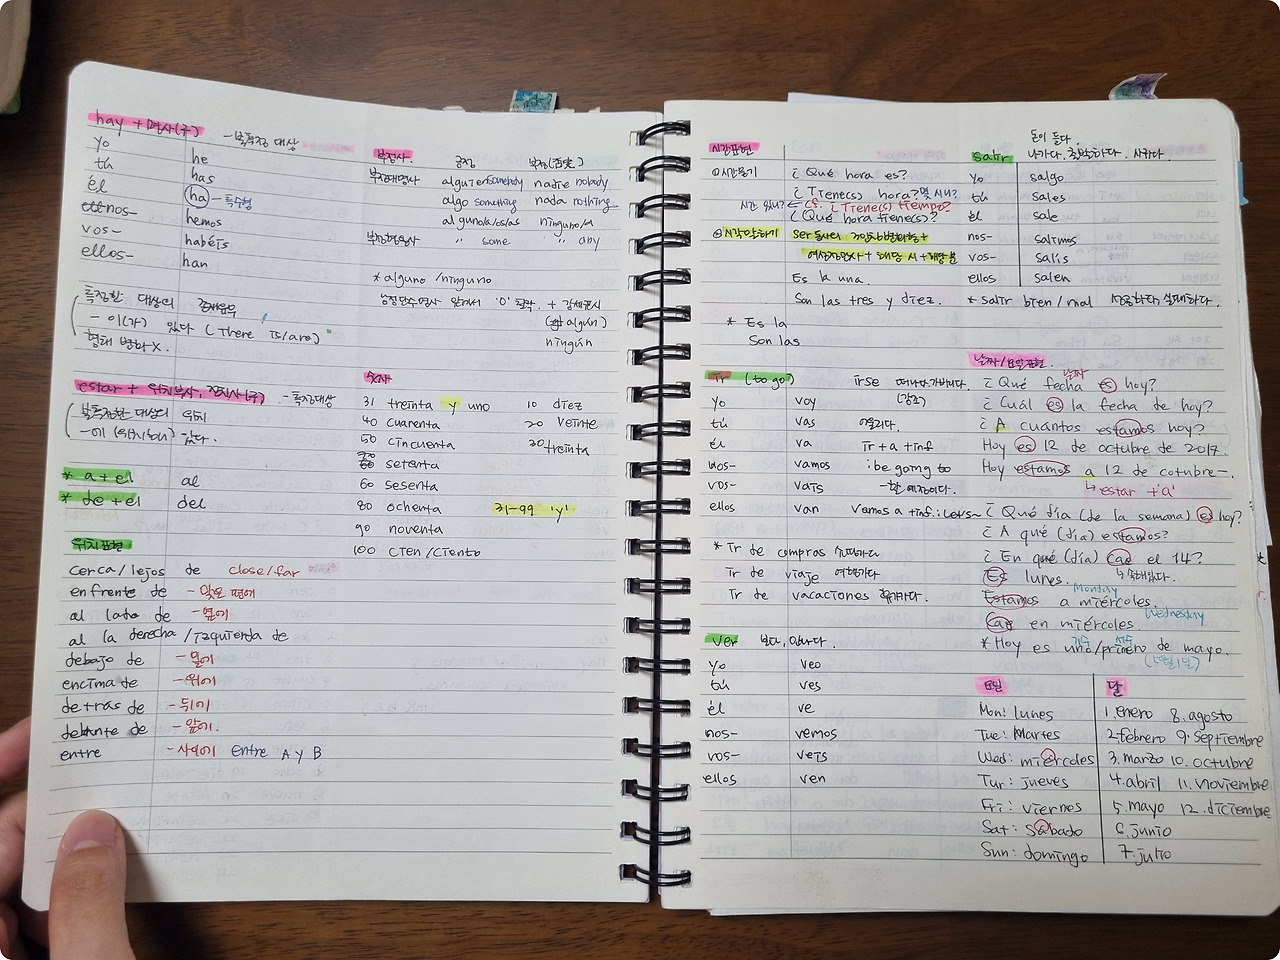 hay + 명사(구) - 불특정 대상
yo he
tú has
él ha - 특수형
nos- hemos
vos- habéis
ellos- han
특정한 대상의 존재유무
- 이(가) 있다 (There is/are)
형태 변화 X.
estar + 위치부사, 전치사(구) - 특정대상
불특정한 대상의 위치
-에 (위치하다) 있다.
* a + el al
* de + el del
위치표현
cerca/lejos de close/far
enfrente de - 맞은 편에
al lado de - 옆에
al la derecha/izquierda de
debajo de - 밑에
encima de - 위에
detrás de - 뒤에
delante de - 앞에.
entre - 사이에 entre A y B
부정사. 긍정 부정(否定)
부정대명사 alguien somebody nadie nobody
algo something nada nothing
alguno/a/os/as ninguno/a
부정형용사 〃 some 〃 any
* alguno /ninguno
남성단수명사 앞에서 'o' 탈락 + 강세표시
(algún)
ningún
숫자
31 treinta y uno 10 diez
40 cuarenta 20 veinte
50 cincuenta 30 treinta
70 setenta
60 sesenta
80 ochenta 31-99 'y'
90 noventa
100 cien/ciento
시간표현
시간묻기 ¿Qué hora es?
¿Tiene(s) hora? 몇 시니?
시간 있니? ← cf. ¿Tiene(s) tiempo?
¿Qué hora tiene(s)?
시각말하기 ser 동사의 3인칭변화형 +
여성정관사 + 해당 시 + 해당 분
Es la una.
Son las tres y diez.
* Es la
Son las
돈이 들다
salir 나가다. 출발하다.
yo salgo
tú sales
él sale
nos- salimos
vos- salís
ellos salen
* salir bien/mal 성공하다, 실패하다.
ir (to go) irse 떠나다, 가버리다.
(강조)
yo voy
tú vas 어울리다.
él va ir + a + inf
nos- vamos : be going to
vos- vais -할 예정이다.
ellos van Vamos a + inf. : Let's~
* ir de compras 쇼핑가다
ir de viaje 여행가다
ir de vacaciones 휴가가다.
ver 보다, 만나다.
yo veo
tú ves
él ve
nos- vemos
vos- veis
ellos ven
날짜/요일 표현
날짜
¿Qué fecha es hoy?
¿Cuál es la fecha de hoy?
¿A cuántos estamos hoy?
Hoy es 12 de octubre de 2017.
Hoy estamos a 12 de cotubre-.
↳ estar + 'a'
¿Qué día (de la semana) es hoy?
¿A qué (día) estamos?
¿En qué (día) cae el 14?
Es lunes. ↳ 속해있다.
Monday
Estamos a miércoles.
Wednesday
Cae en miércoles.
기수 서수
* Hoy es uno/primero de mayo.
(5월 1일)
요일 달
Mon: lunes 1. enero 8. agosto
Tue: Martes 2. febrero 9. septiembre
Wed: miércoles 3. marzo 10. octubre
Tur: jueves 4. abril 11. noviembre
Fri: viernes 5. mayo 12. diciembre
Sat: sábado 6. junio
Sun: domingo 7. julio